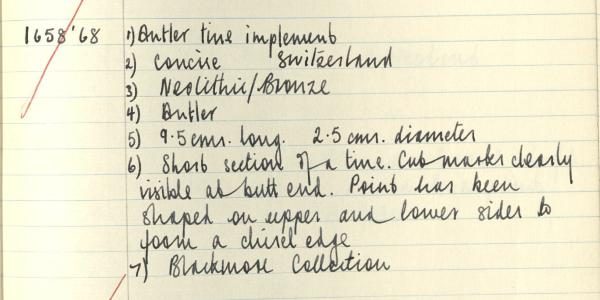 1658'68 1) Antler tine implement
2) Concise Switzerland
3) Neolithic/Bronze
4) Antler
5) 9.5 cms. long. 2.5 cms. diameter
6) Short section of a tine. Cut marks clearly
visible at butt end. Point has been
shaped on upper and lower sides to
form a chisel edge
7) Blackmore Collection